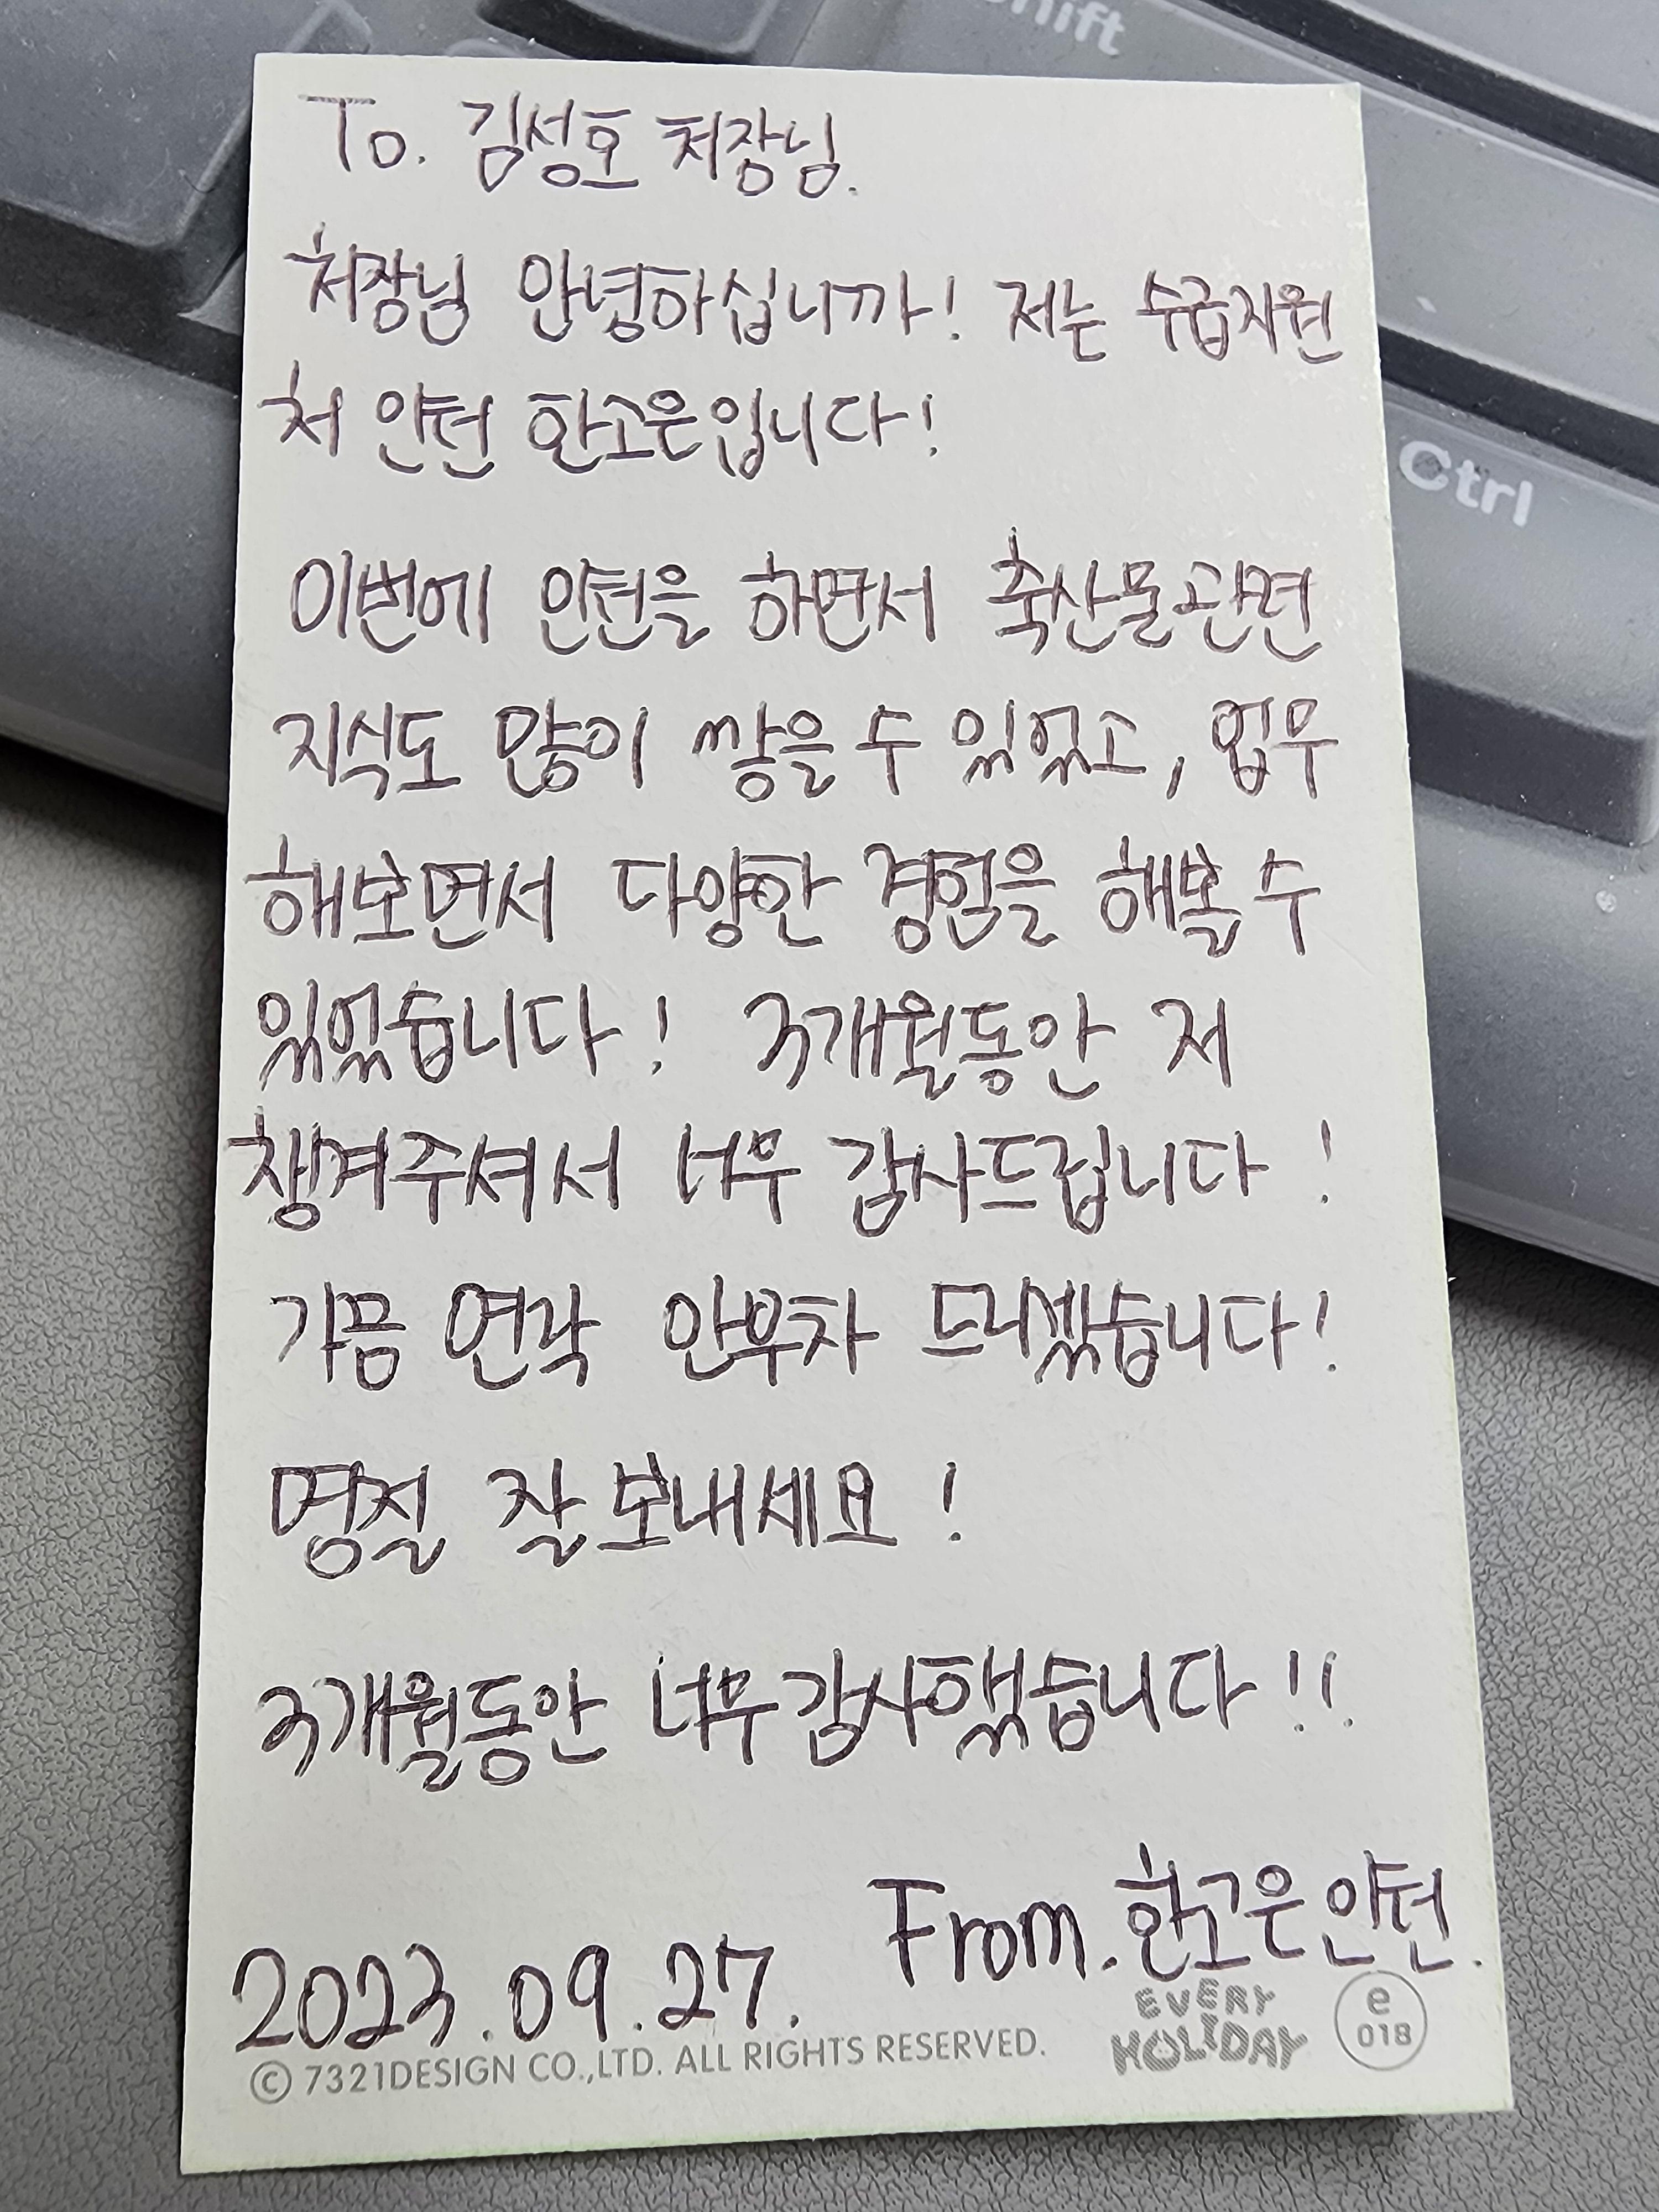 To. 김성호 처장님.
처장님 안녕하십니까! 저는 수급지원
처 인턴 한고은입니다!
이번에 인턴을 하면서 축산물관련
지식도 많이 쌓을 수 있었고, 업무
해보면서 다양한 경험을 해볼 수
있었습니다! 3개월동안 저
챙겨주셔서 너무 감사드립니다!
가끔 연락 안부차 드리겠습니다!
명절 잘 보내세요!
3개월동안 너무 감사했습니다!!
From. 한고은 인턴.
2023.09.27.
© 7321DESIGN CO.,LTD. ALL RIGHTS RESERVED.
EVERY
HOLIDAY
e
018
Shift
Ctrl